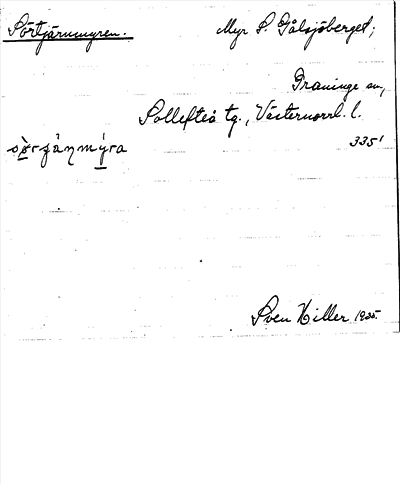 Sörtjärnmyren. Myr S. Gålsjöberget;
Graninge sn,
Sollefteå tg., Västernorrl. l.
335¹
Sven Hiller 1935.